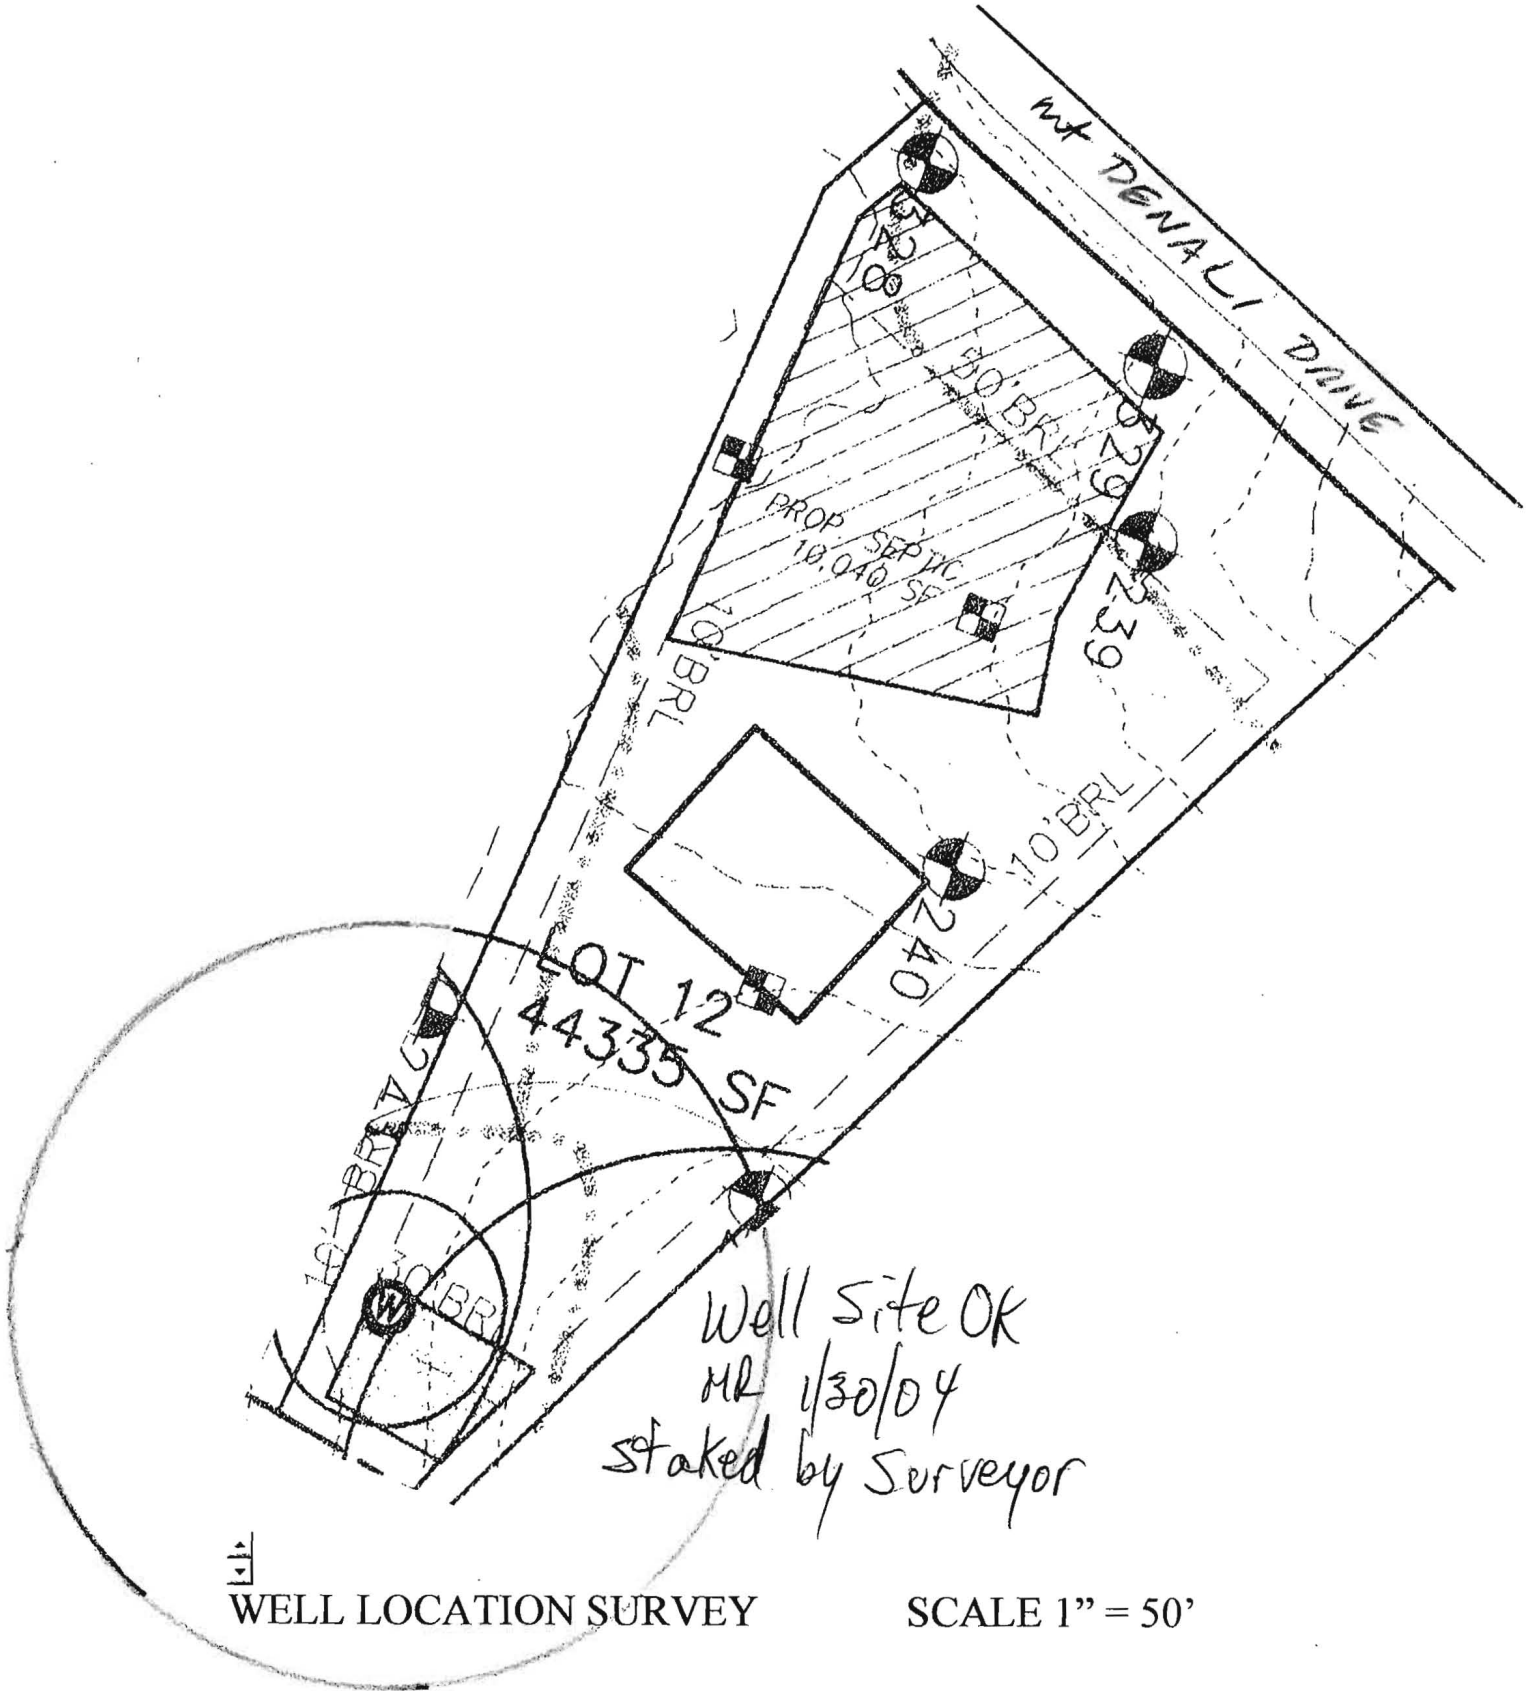 mt DENALI DRIVE
328
30' BRL
329
PROP. SEPTIC
10,040 SF
239
10' BRL
10' BRL
240
LOT 12
44335 SF
10' BRL
30' BRL
W
Well Site OK
MR 1/30/04
staked by Surveyor
WELL LOCATION SURVEY
SCALE 1” = 50’